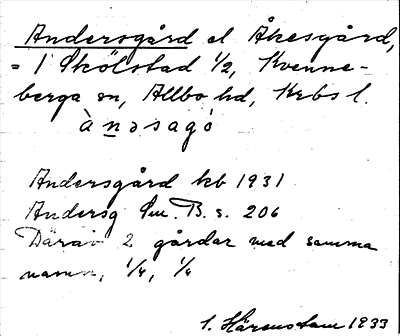 Andersgård el Åkesgård,
= 1 Skölstad 1/2, Kvenne-
berga sn, Allbo hd, Krbs l.
ànəsagó
Andersgård kb 1931
Andersg Sm. B. s. 206
Därav 2 gårdar med samma
namn, 1/4, 1/4
Härenstam 1933